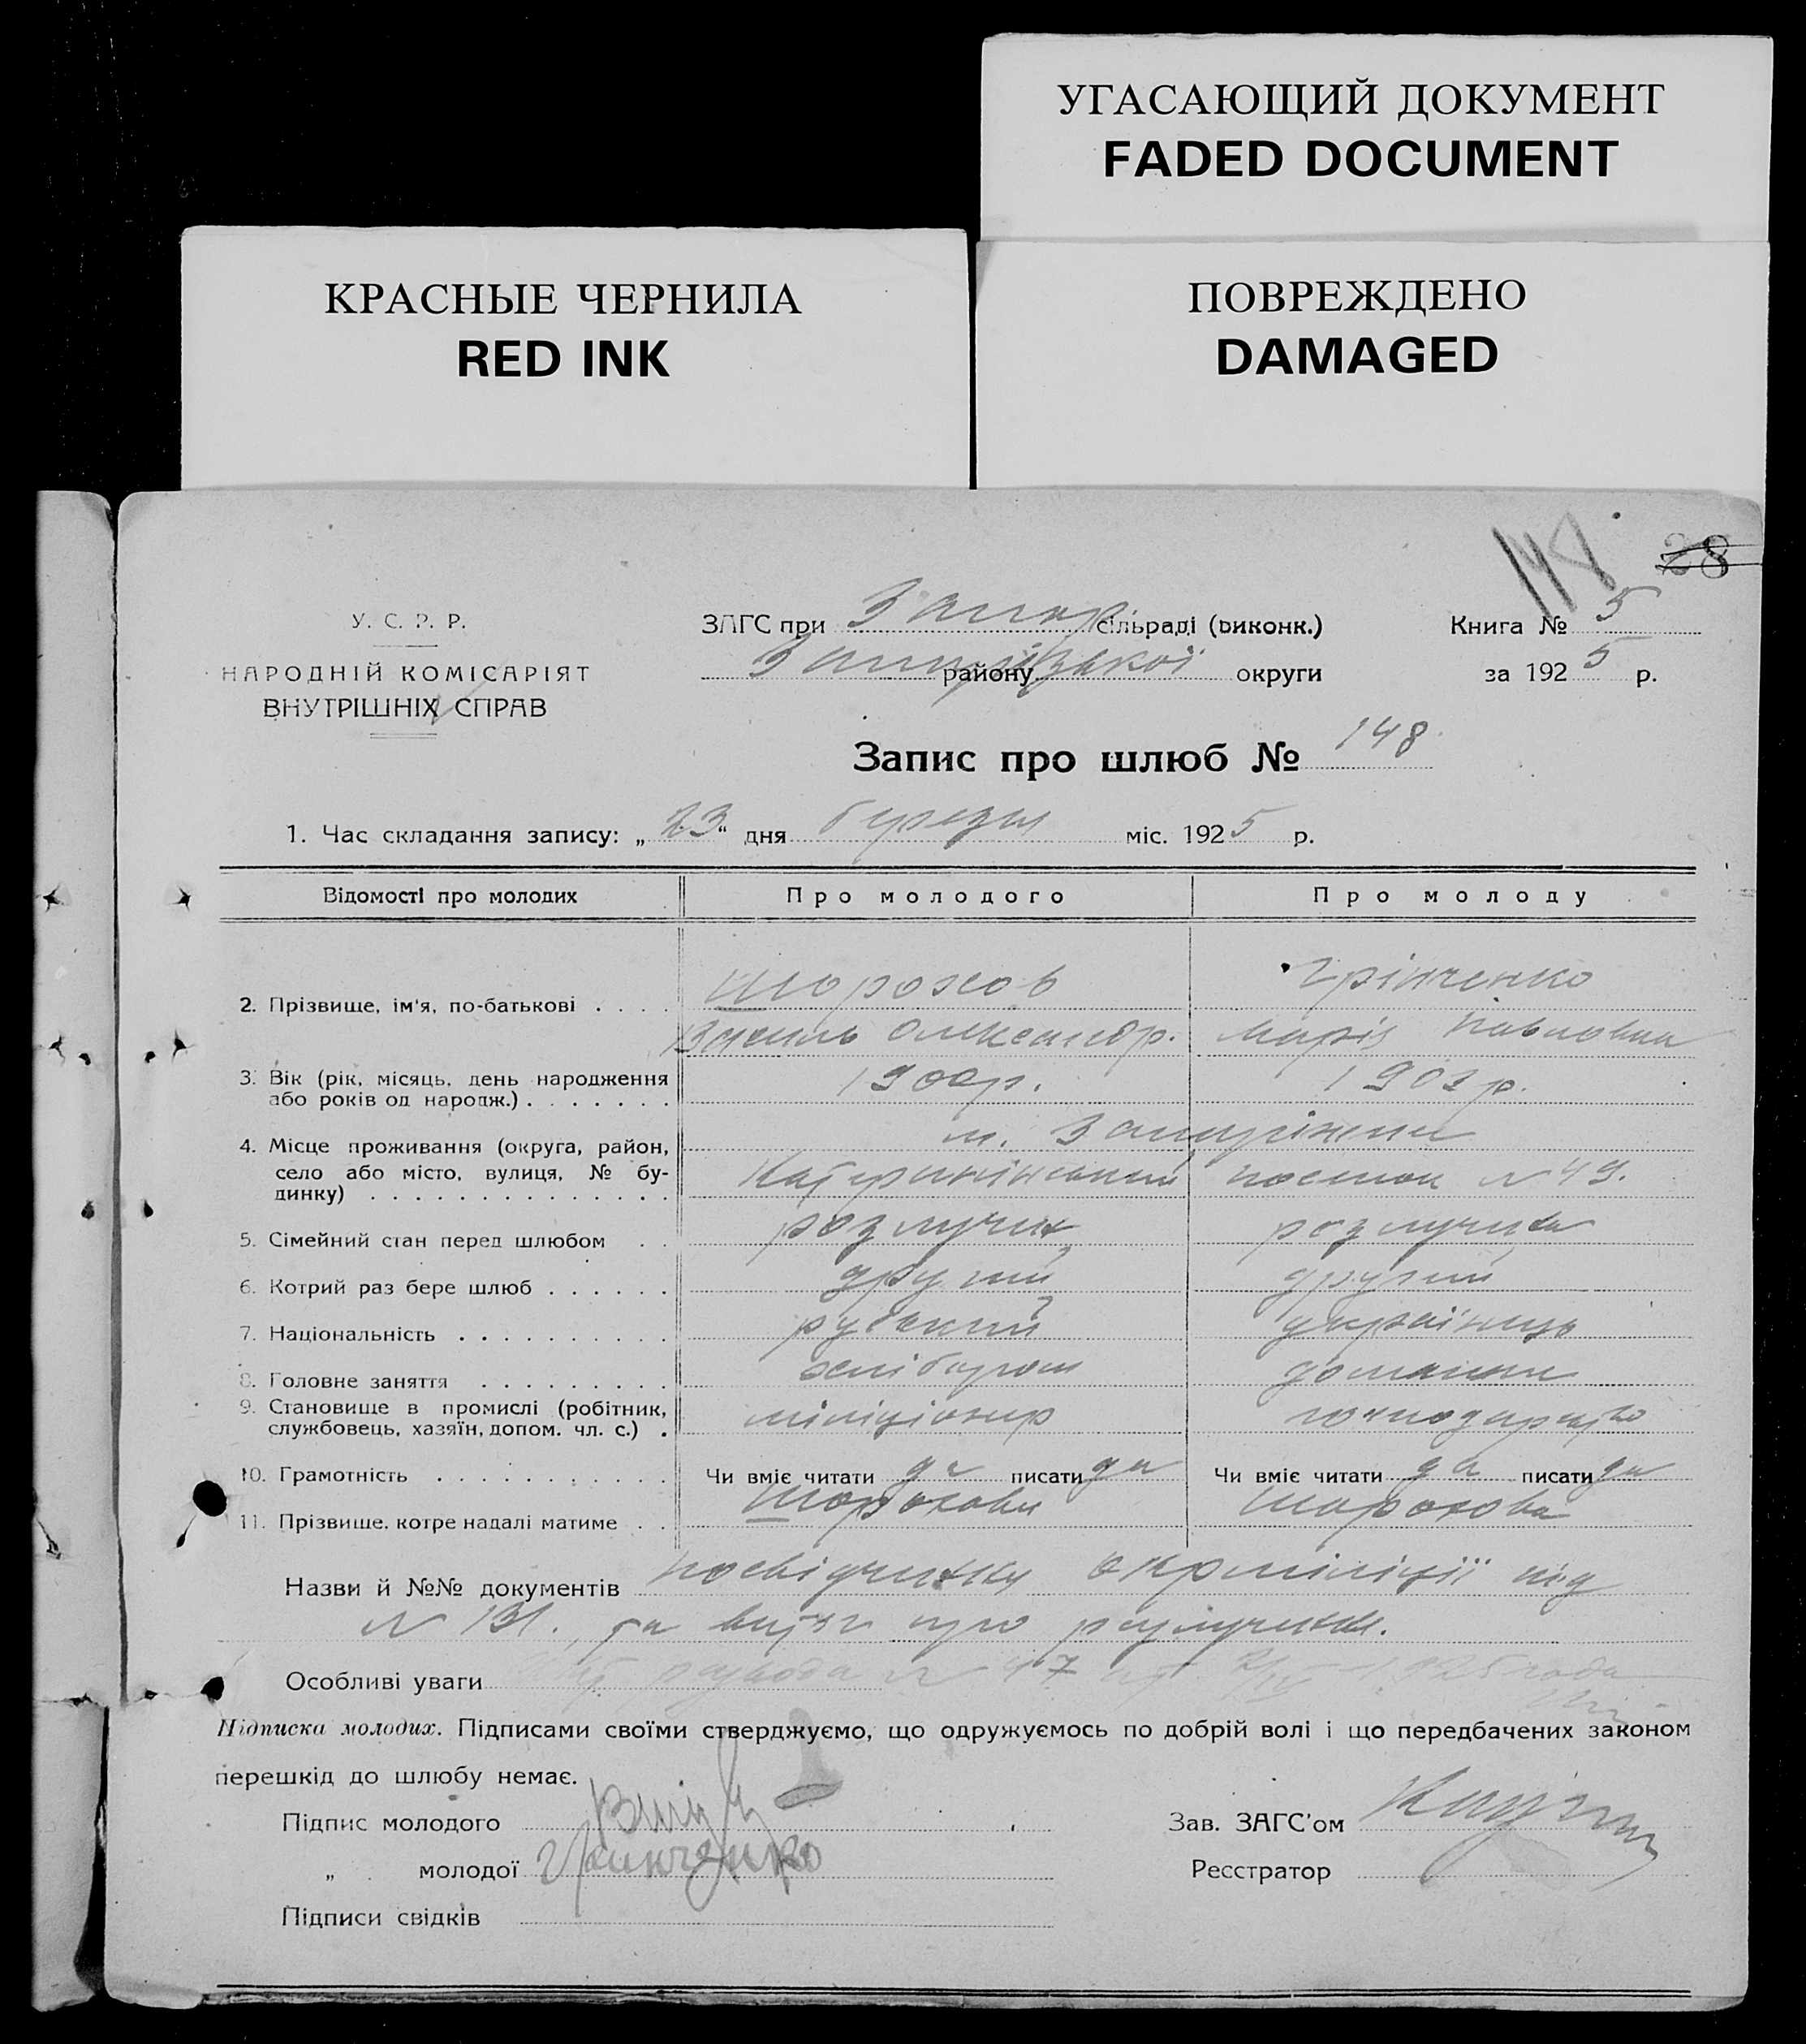 УГАСАЮЩИЙ ДОКУМЕНТ
FADED DOCUMENT
КРАСНЫЕ ЧЕРНИЛА
RED INK
ПОВРЕЖДЕНО
DAMAGED
148
28
У. С. Р. Р.
НАРОДНІЙ КОМІСАРІЯТ
ВНУТРІШНІХ СПРАВ
ЗАГС при Запор сільраді (виконк.)
Запорізької району округи
Книга № 5
за 1925 р.
Запис про шлюб № 148
1. Час складання запису: „23“ дня березня міс. 1925 р.
Відомості про молодих
Про молодого
Про молоду
2. Прізвище, ім'я, по-батькові
Шорохов
Василь Олександр.
Грінченко
Марія Павловна
3. Вік (рік, місяць, день народження
або років од народж.)
1900р.
1903 р.
4. Місце проживання (округа, район,
село або місто, вулиця, № бу-
динку)
м. Запоріжжя
посьолок № 49.
5. Сімейний стан перед шлюбом
розлучен
розлучена
6. Котрий раз бере шлюб
другий
другий
7. Національність
руський
українць
8. Головне заняття
хлібороб
домашня
9. Становище в промислі (робітник,
службовець, хазяїн, допом. чл. с.)
міліціонер
10. Грамотність
Чи вміє читати да писати да
Чи вміє читати да писати да
11. Прізвище, котре надалі матиме
Шорохова
Назви й №№ документів посвідчення окрміліції під
№ 131. та витяг про розлучення.
Особливі уваги
Підписка молодих. Підписами своїми стверджуємо, що одружуємось по добрій волі і що передбачених законом
перешкід до шлюбу немає.
Підпис молодого
„ молодої Гринченко
Підписи свідків
Зав. ЗАГС'ом
Реєстратор